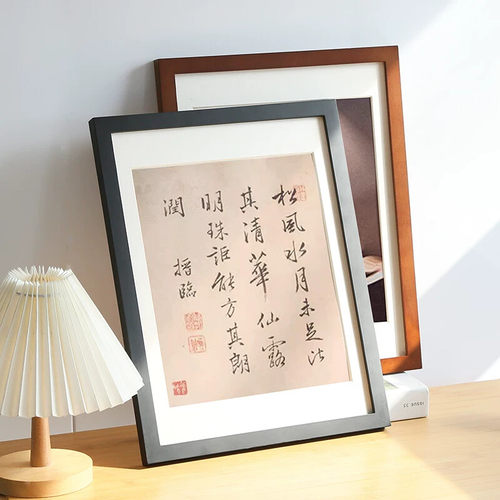 松風水月未足比
其清華仙露
明珠詎能方其朗
潤
臨